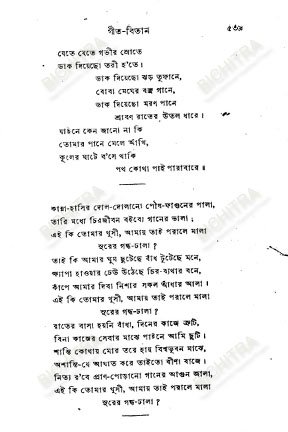 গীত-বিতান
৫৩৯
যেতে যেতে গভীর স্রোতে
ডাক দিয়েছো তরী হ'তে।
ডাক দিয়েছো ঝড় তুফানে,
বোবা মেঘের বজ্র গানে,
ডাক দিয়েছো মরণ পানে
শ্রাবণ রাতের উতল ধারে।
যাইনে কেন জানো না কি
তোমার পানে মেলে আঁখি,
কূলের ঘাটে ব'সে থাকি
পথ কোথা পাই পারাবারে॥
কান্না-হাসির দোল-দোলানো পৌষ-ফাগুনের পালা,
তারি মধ্যে চিরজীবন বইবো গানের ডালা;
এই কি তোমার খুসী, আমায় তাই পরালে মালা
সুরের গন্ধ-ঢালা?
তাই কি আমার ঘুম ছুটেছে বাঁধ টুটেছে মনে,
খ্যাপা হাওয়ার ঢেউ উঠেছে চির-ব্যথার বনে,
কাঁপে আমার দিবা নিশার সকল আঁধার আলা।
এই কি তোমার খুসী, আমায় তাই পরালে মালা
সুরের গন্ধ-ঢালা?
রাতের বাসা হয়নি বাঁধা, দিনের কাজে ত্রুটি,
বিনা কাজের সেবার মাঝে পাইনে আমি ছুটি।
শান্তি কোথায় মোর তরে হায় বিশ্বভুবন মাঝে,
অশান্তি-যে আঘাত করে তাইতো বীণা বাজে।
নিত্য র'বে প্রাণ-পোড়ানো গানের আগুন জ্বালা,
এই কি তোমার খুসী, আমায় তাই পরালে মালা
সুরের গন্ধ-ঢালা?
BICHITRA